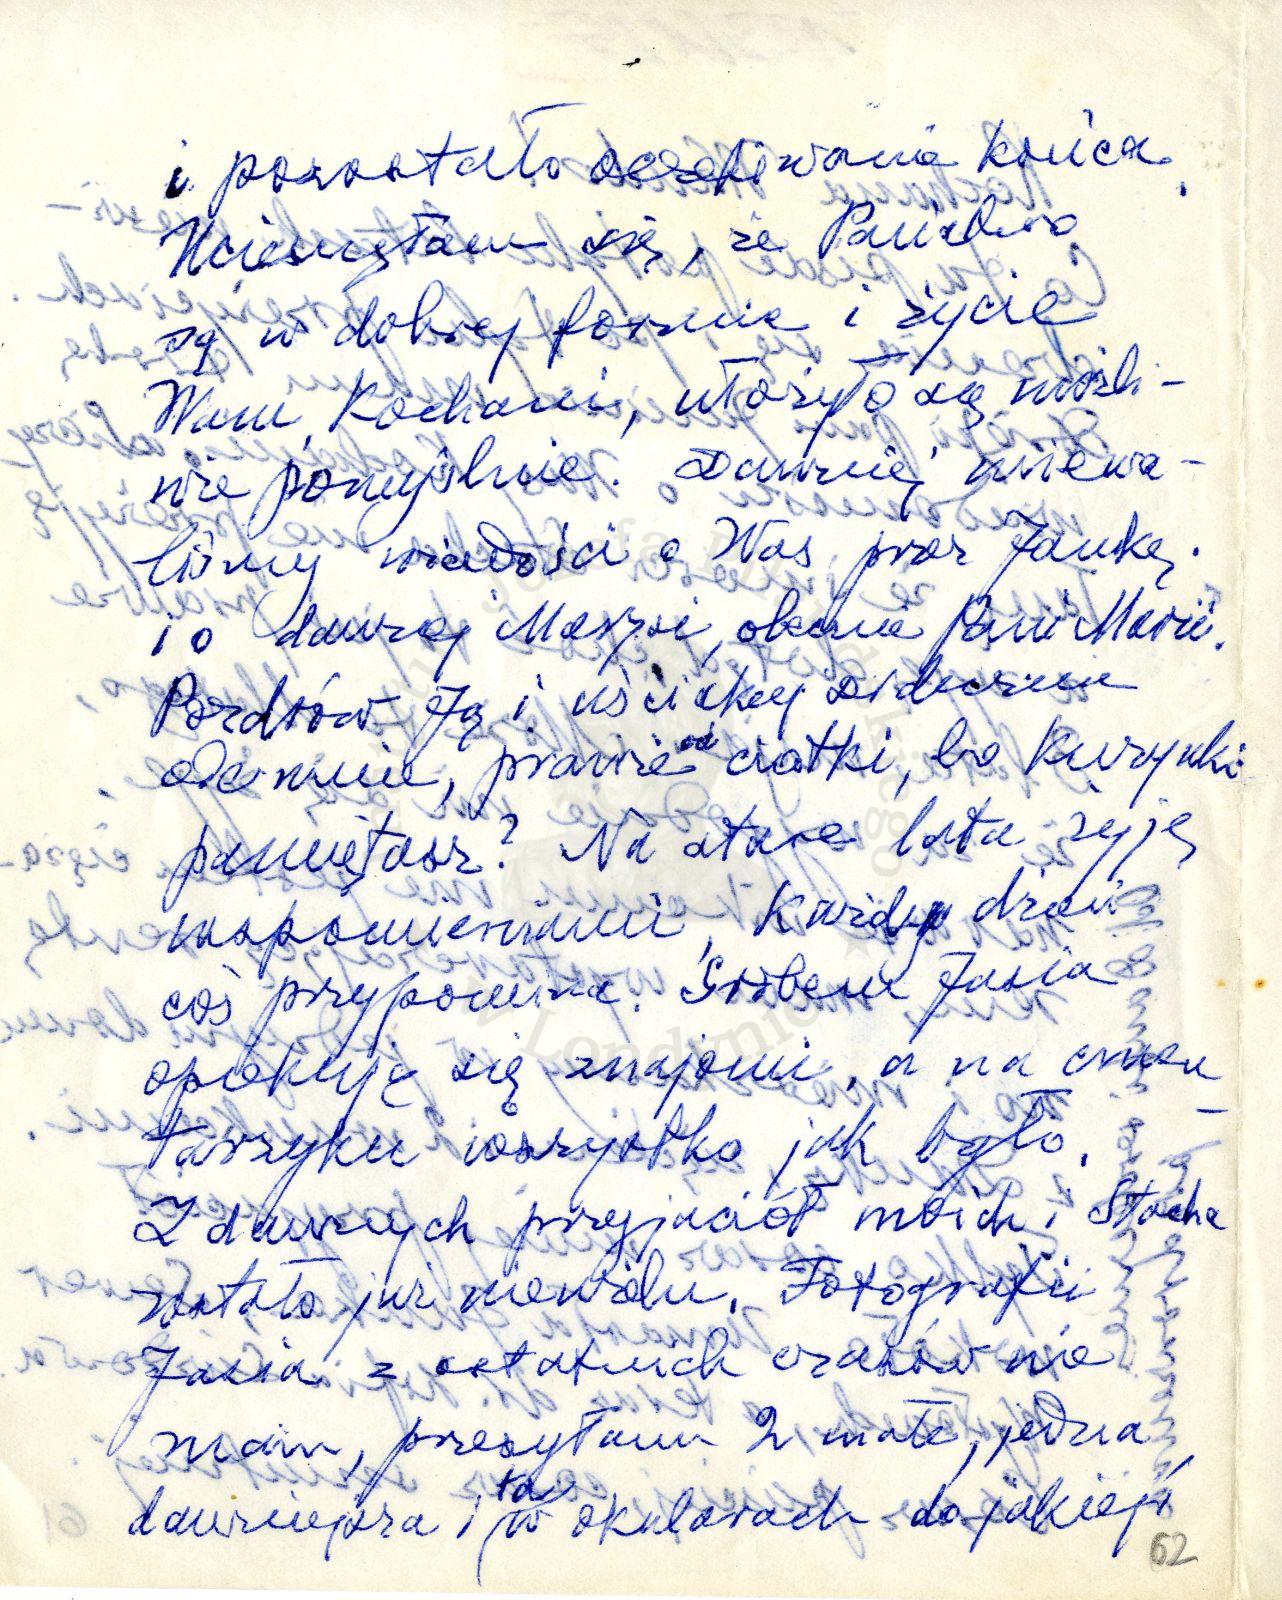 i pozostało oczekiwanie końca.
Ucieszyłam się, że Państwo
są w dobrej formie i życie
Wam, Kochani, ułożyło się możli-
wie pomyślnie. Dawniej miewa-
liśmy wiadości o Was przez Jankę.
i o dawnej Maszsi, obecnie Pani Marii.
Pozdrów Ją i uściskaj serdecznie
ode mnie, prawie od ciotki, bo kuzynki
pamiętasz? Na stare lata żyję
wspomnieniami, każdy dzień
coś przypomina. Grobem Jasia
opiekuję się znajomi, a na cmen
tarzyku wszystko jak było.
Z dawnych przyjaciół moich i Stacha
zostało już niewielu. Fotografii
Jasia z ostatnich czasów nie
mam, przesyłam 2 małe, jedna
dawniejsza i ta w okularach do jakiejś
62